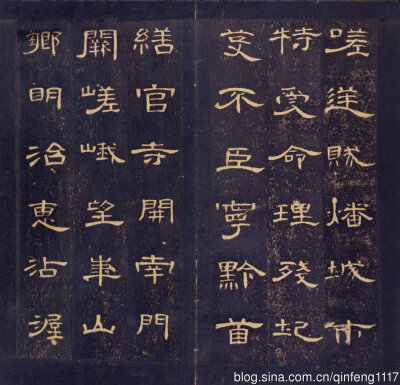 嗟逆賊燔城市
特受命理殘圮
芟不臣寧黔首
繕官寺開南門
闕嵯峨望華山
鄉明治惠沾渥
blog.sina.com.cn/qinfeng1117